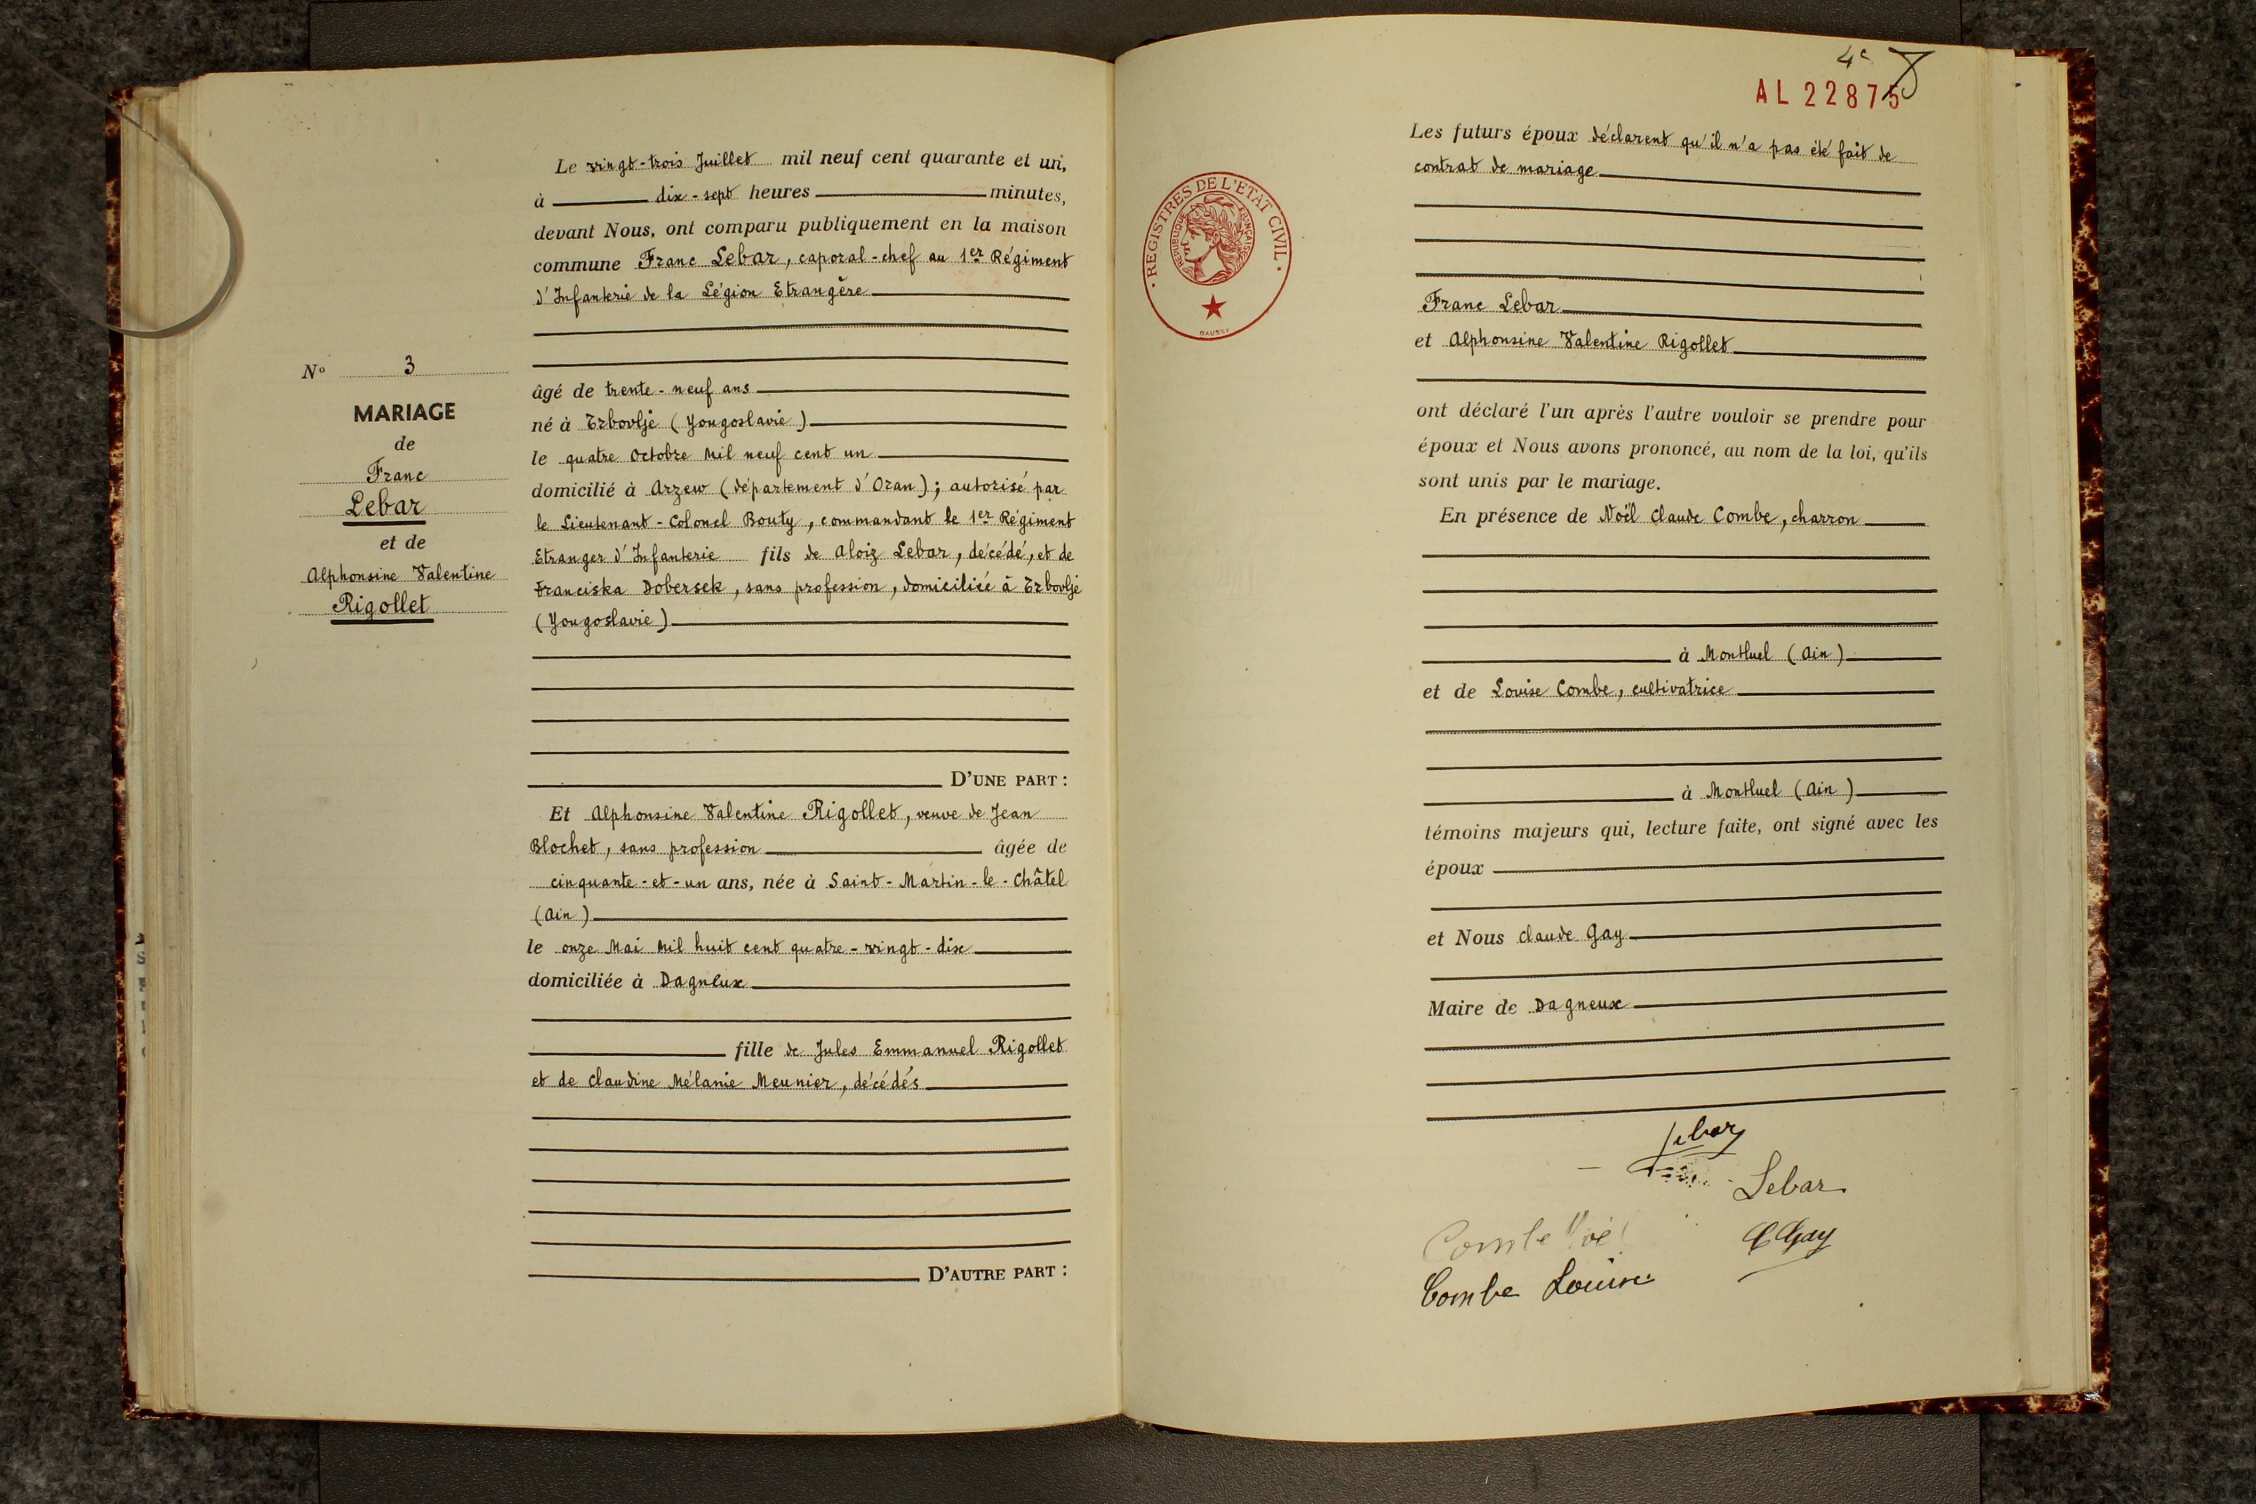 Le vingt-trois Juillet mil neuf cent quarante et un,
à dix-sept heures minutes,
devant Nous, ont comparu publiquement en la maison
commune Franc Lebar, caporal-chef au 1er Régiment
d'Infanterie de la Légion Etrangère
N° 3
MARIAGE
de
Franc
Lebar
et de
Alphonsine Valentine
Rigollet
âgé de trente-neuf ans
né à Trbovlje (Yougoslavie)
le quatre Octobre mil neuf cent un
domicilié à Arzew (département d'Oran); autorisé par
le Lieutenant-Colonel Bouty, commandant le 1er Régiment
Etranger d'Infanterie fils de Aloiz Lebar, décédé, et de
Franciska Dobersek, sans profession, domiciliée à Trbovlje
(Yougoslavie)
D'UNE PART :
Et Alphonsine Valentine Rigollet, veuve de Jean
Blochet, sans profession âgée de
cinquante-et-un ans, née à Saint-Martin-le-Châtel
(Ain)
le onze Mai mil huit cent quatre-vingt-dix
domiciliée à Dagneux
fille de Jules Emmanuel Rigollet
et de Claudine Mélanie Meunier, décédés
D'AUTRE PART :
4e
AL 22875
REGISTRES DE L'ETAT CIVIL
REPUBLIQUE FRANÇAISE
Les futurs époux déclarent qu'il n'a pas été fait de
contrat de mariage
Franc Lebar
et Alphonsine Valentine Rigollet
ont déclaré l'un après l'autre vouloir se prendre pour
époux et Nous avons prononcé, au nom de la loi, qu'ils
sont unis par le mariage.
En présence de Noël Claude Combe, charron
à Montluel (Ain)
et de Louise Combe, cultivatrice
à Montluel (Ain)
témoins majeurs qui, lecture faite, ont signé avec les
époux
et Nous Claude Gay
Maire de Dagneux
Lebar
Lebar
Combe
C Gay
Combe Louise